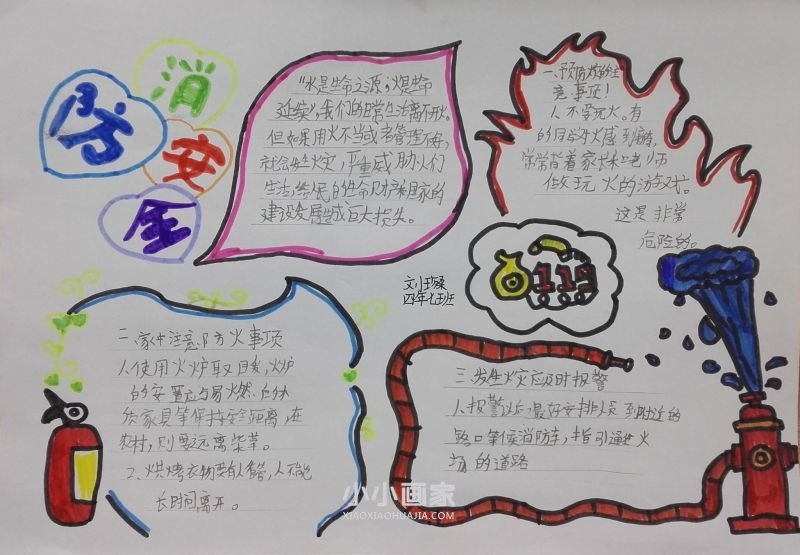 消
防
安
全
"水是生命之源，火是生命
延续"，我们的日常生活离不开火。
但如果用火不当或者管理不好，
就会发生火灾，严重威胁人们
生活，给人民的生命财产和国家的
建设发展造成巨大损失。
一、预防火灾的注
意事项！
1、不要玩火。有
的同学对火感到
常常背着家长和老师
做玩火的游戏。
这是非常
危险的。
119
四年七班
二、家中注意防火事项
1、使用火炉取暖，火炉
的安置应与易燃的
质家具等保持安全距离，在
农村，则要远离柴草。
2、烘烤衣物要有人看管，人不能
长时间离开。
三、发生火灾应及时报警
1、报警以后，最好安排人员到附近的
路口等候消防车，指引通往火
场的道路
小小画家
XIAOXIAOHUAJIA.COM